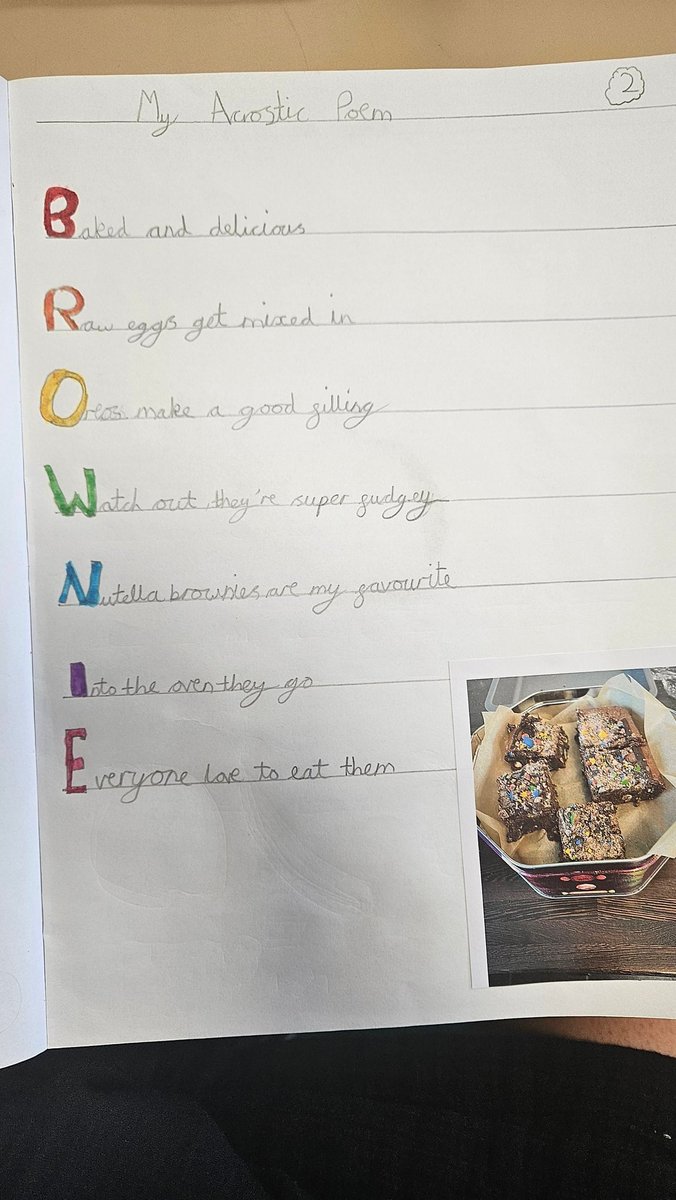 My Acrostic Poem
2
Baked and delicious
Raw eggs get mixed in
Oreos make a good filling
Watch out they're super fudgey
Nutella brownies are my favourite
Into the oven they go
Everyone love to eat them